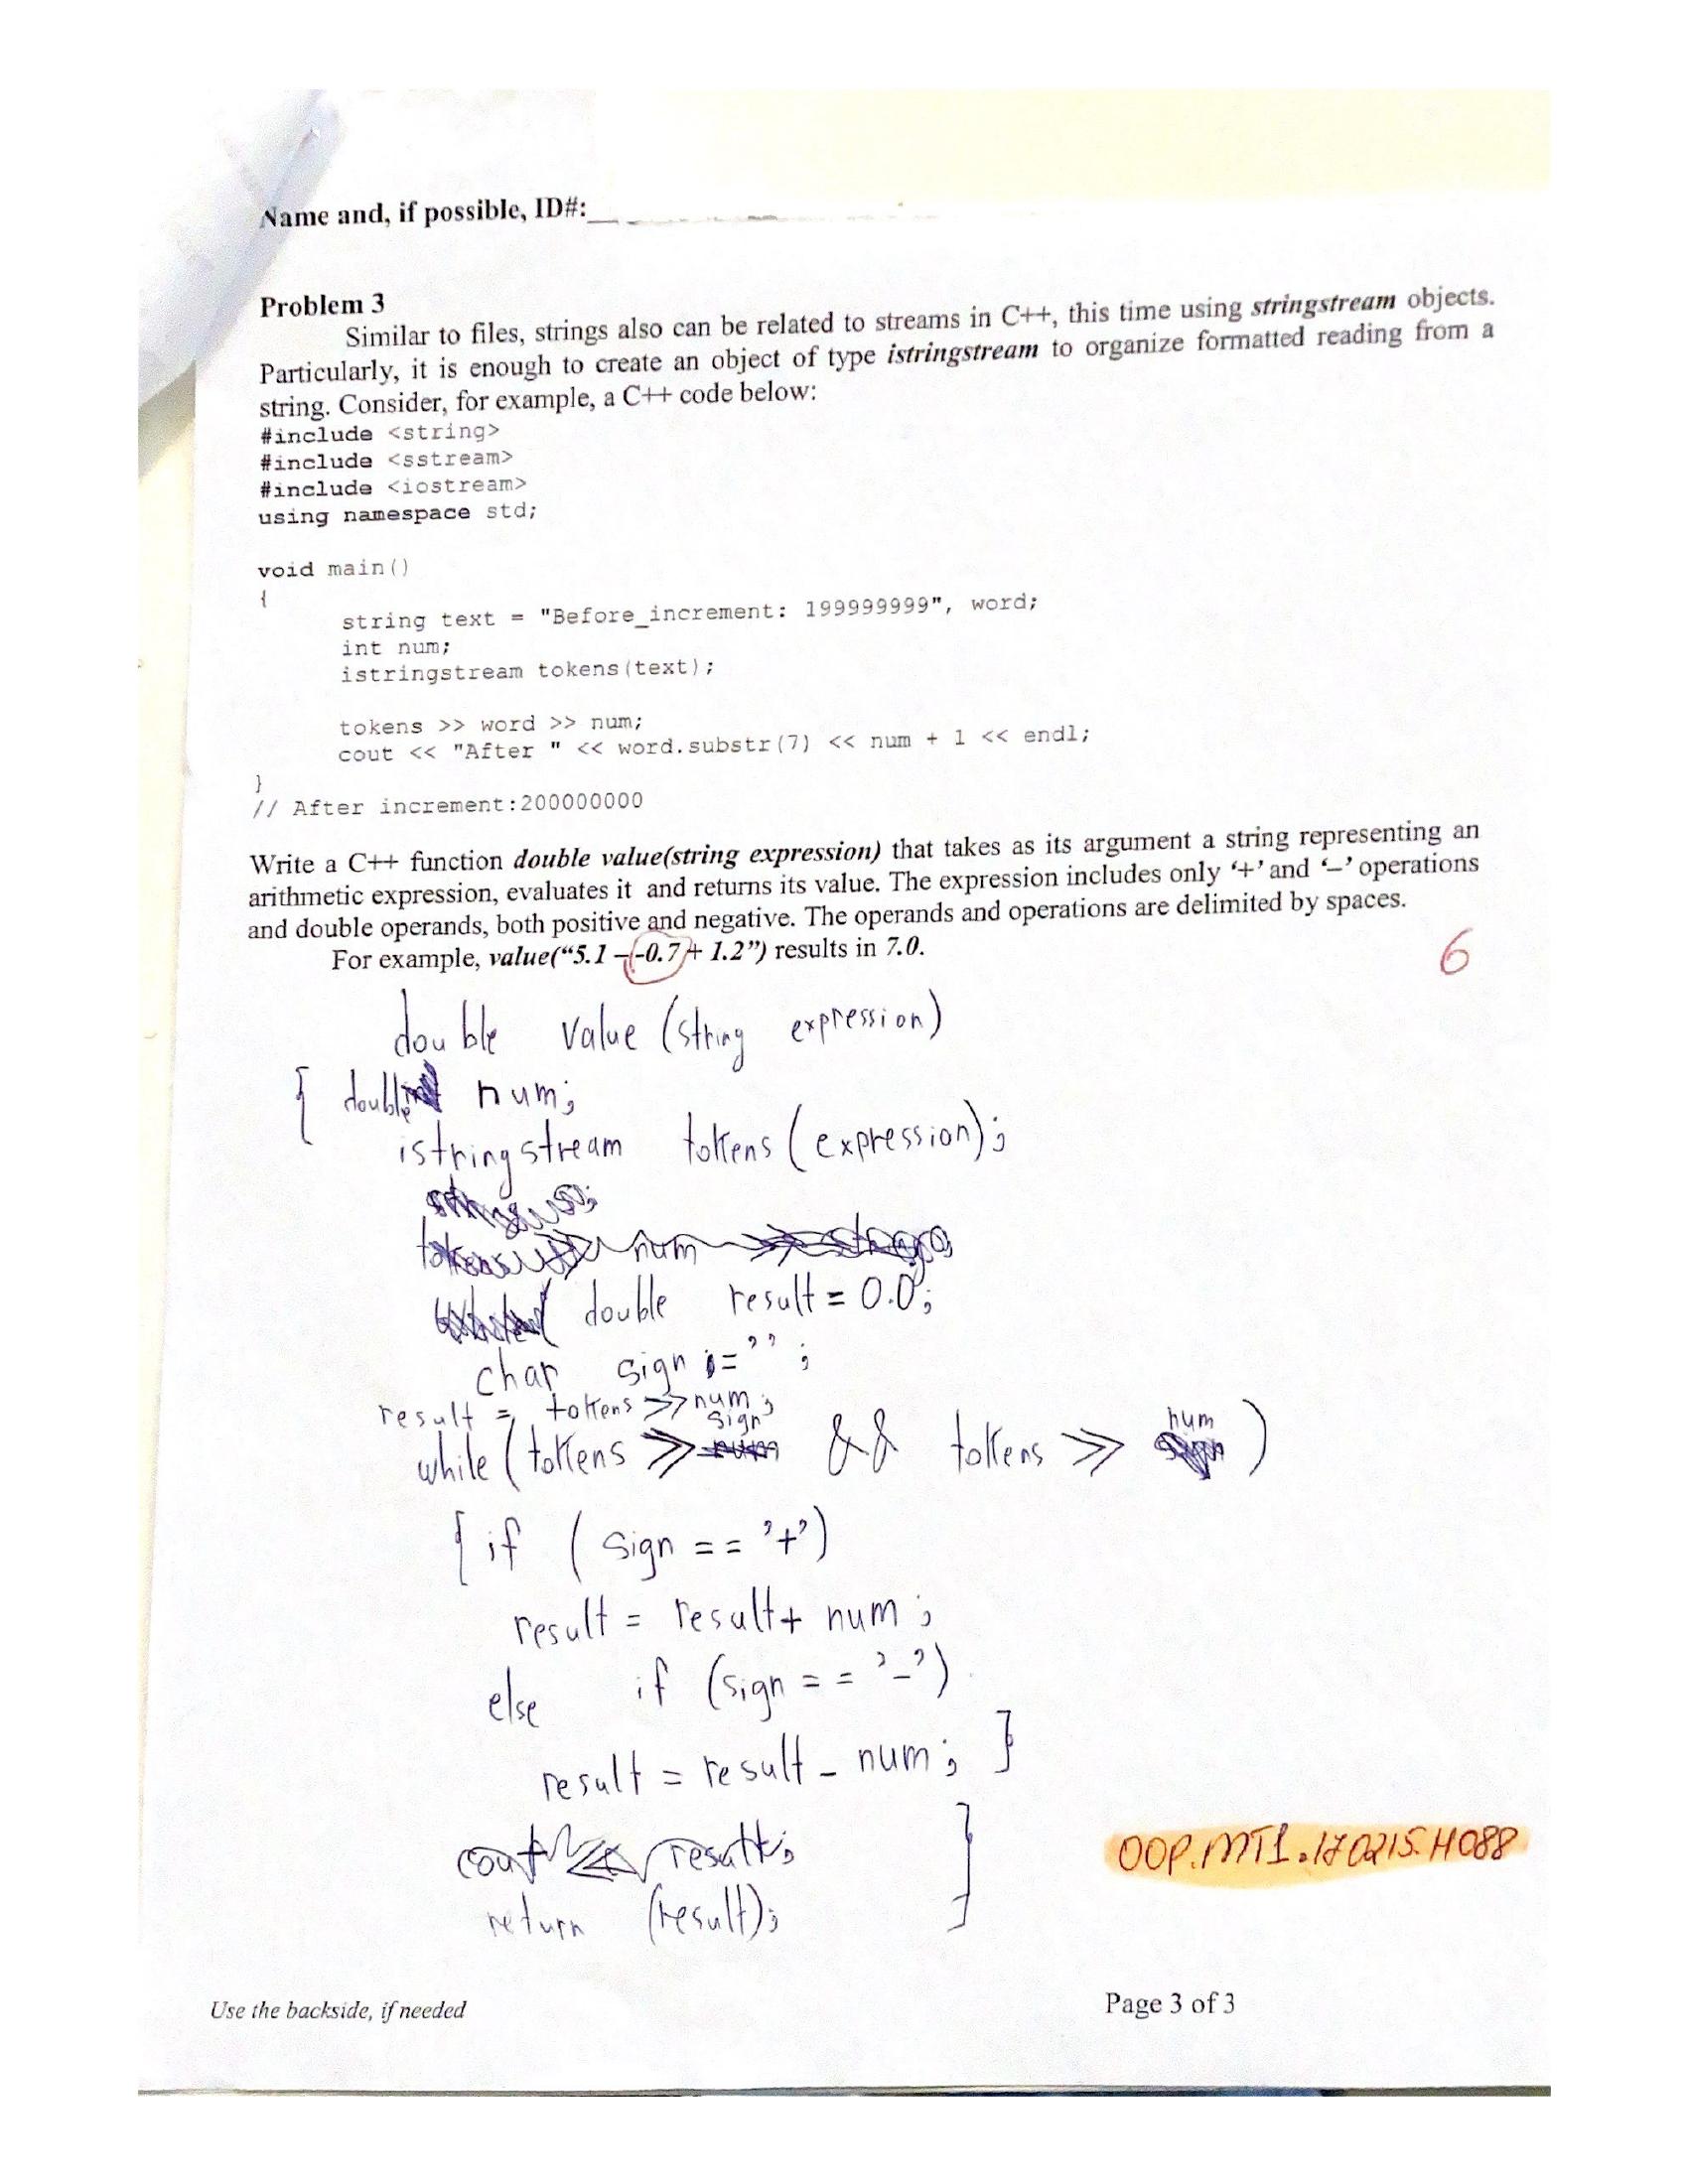 Name and, if possible, ID#:
Problem 3
Similar to files, strings also can be related to streams in C++, this time using stringstream objects.
Particularly, it is enough to create an object of type istringstream to organize formatted reading from a
string. Consider, for example, a C++ code below:
#include <string>
#include <sstream>
#include <iostream>
using namespace std;
void main()
{
string text = "Before_increment: 199999999", word;
int num;
istringstream tokens(text);
tokens >> word >> num;
cout << "After " << word.substr(7) << num + 1 << endl;
}
// After increment:200000000
Write a C++ function double value(string expression) that takes as its argument a string representing an
arithmetic expression, evaluates it and returns its value. The expression includes only ‘+’ and ‘–’ operations
and double operands, both positive and negative. The operands and operations are delimited by spaces.
For example, value(“5.1 – -0.7 + 1.2”) results in 7.0.
6
double value (string expression)
{ double num;
istringstream tokens (expression);
num
double result = 0.0;
char sign = '' ;
result = tokens >> num;
while (tokens >> sign && tokens >> num)
{ if ( sign == '+')
result = result + num ;
else if (sign == '-')
result = result - num ; }
cout << result;
return (result); }
OOP.MT1.170215.H088
Use the backside, if needed
Page 3 of 3